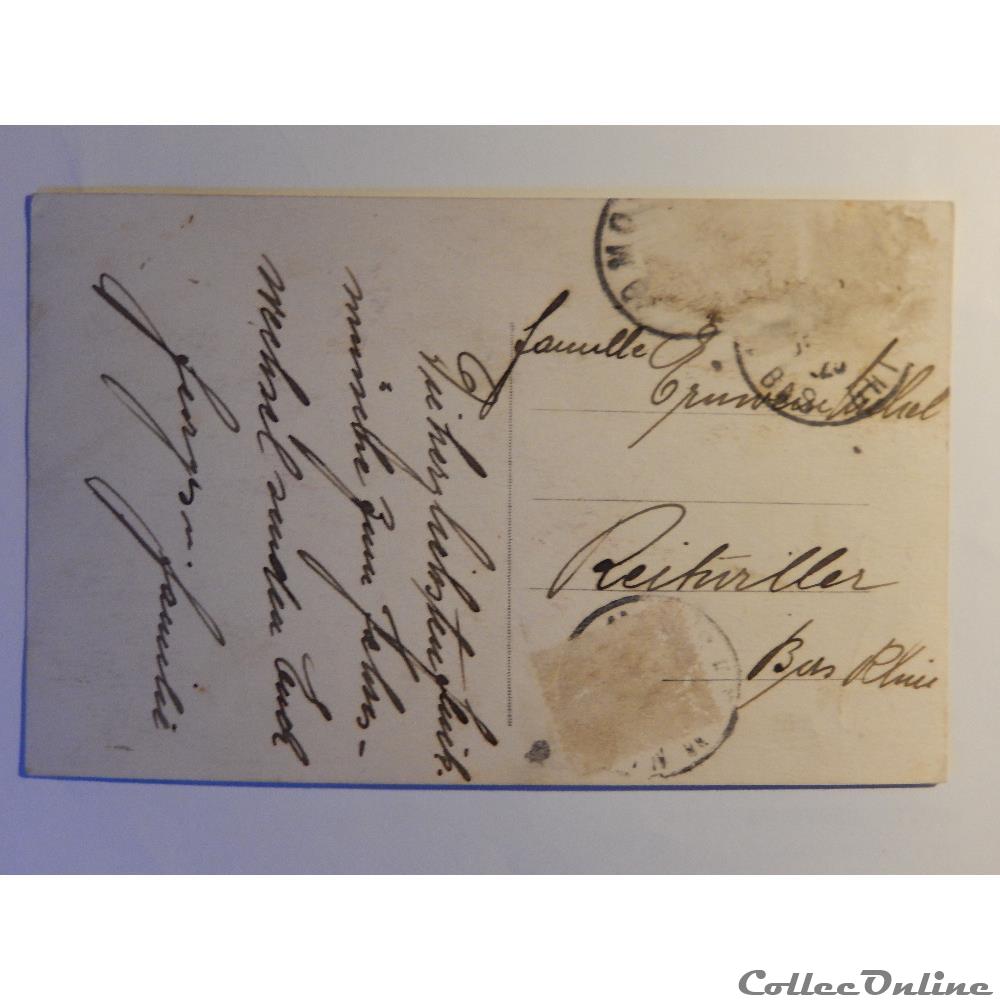 Die herzliebsten Glück-
wünsche zum Jahres-
wechsel senden Euch
Georges u. Familie
famille
Reitwiller
Bas Rhin
OMO
BAS
RHI
CollecOnline